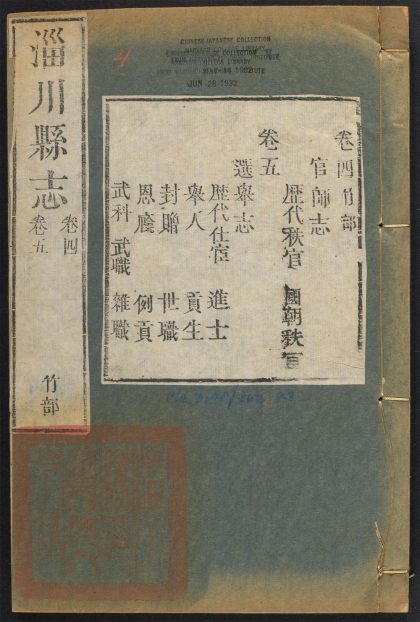 淄川縣志
卷四
卷五
竹部
4
CHINESE JAPANESE COLLECTION
JUN 28 1932
卷四竹部
官師志
歷代秩官 國朝秩官
卷五
選舉志
歷代仕宦 進士
舉人 貢生
封贈 世職
恩廕 例貢
武科 武職 雜職